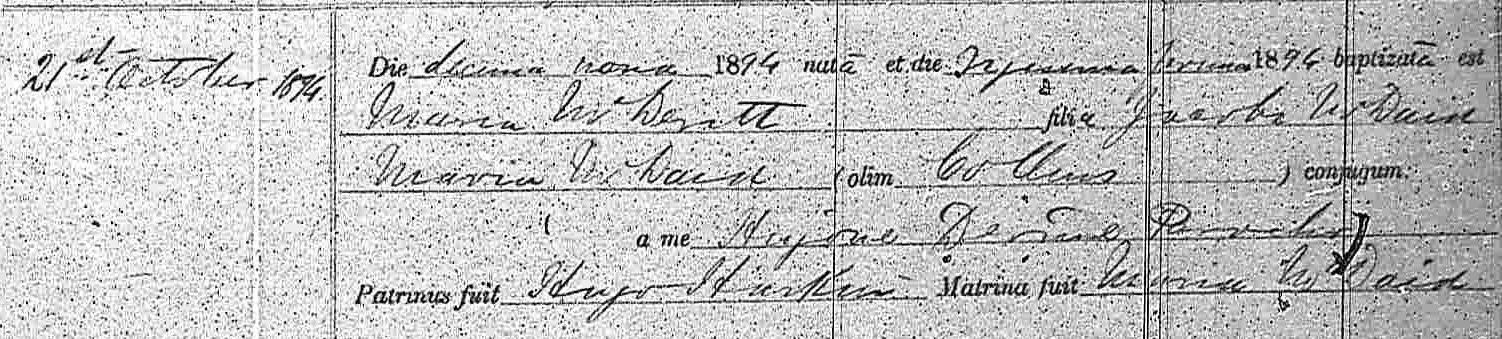 21st October 1894. Die decima nona 1894 natā et die Vigesima prima 1894 baptizatā est
Maria McDevitt filia Jacobi McDaid
Maria McDaid (olim Collins ) conjugum:
a me Hugone Devine Parocho
Patrinus fuit Hugo Harkin Matrina fuit Maria McDaid